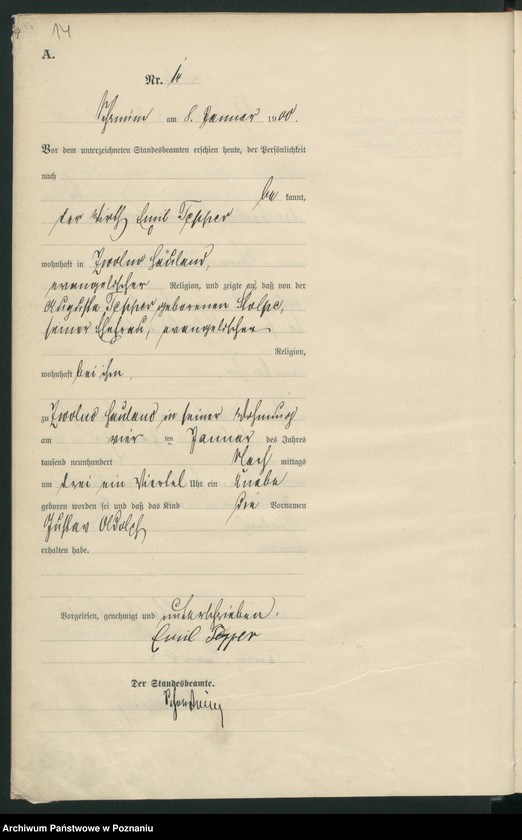 14
A.
Nr. 14
Schrimm am 8. Januar 1900.
Vor dem unterzeichneten Standesbeamten erschien heute, der Persönlichkeit
nach
be kannt,
der Wirth Emil Tepper
wohnhaft in Hauland,
evangelischer Religion, und zeigte an, daß von der
Auguste Tepper geborenen Kolpe,
seiner Ehefrau, evangelischer
Religion,
wohnhaft bei ihm,
zu Hauland in seiner Wohnung
am vier ten Januar des Jahres
tausend neunhundert Nach mittags
um drei ein Viertel Uhr ein Knabe
geboren worden sei und daß das Kind die Vornamen
Gustav Adolph
erhalten habe.
Vorgelesen, genehmigt und unterschrieben.
Emil Tepper
Der Standesbeamte.
Archiwum Państwowe w Poznaniu